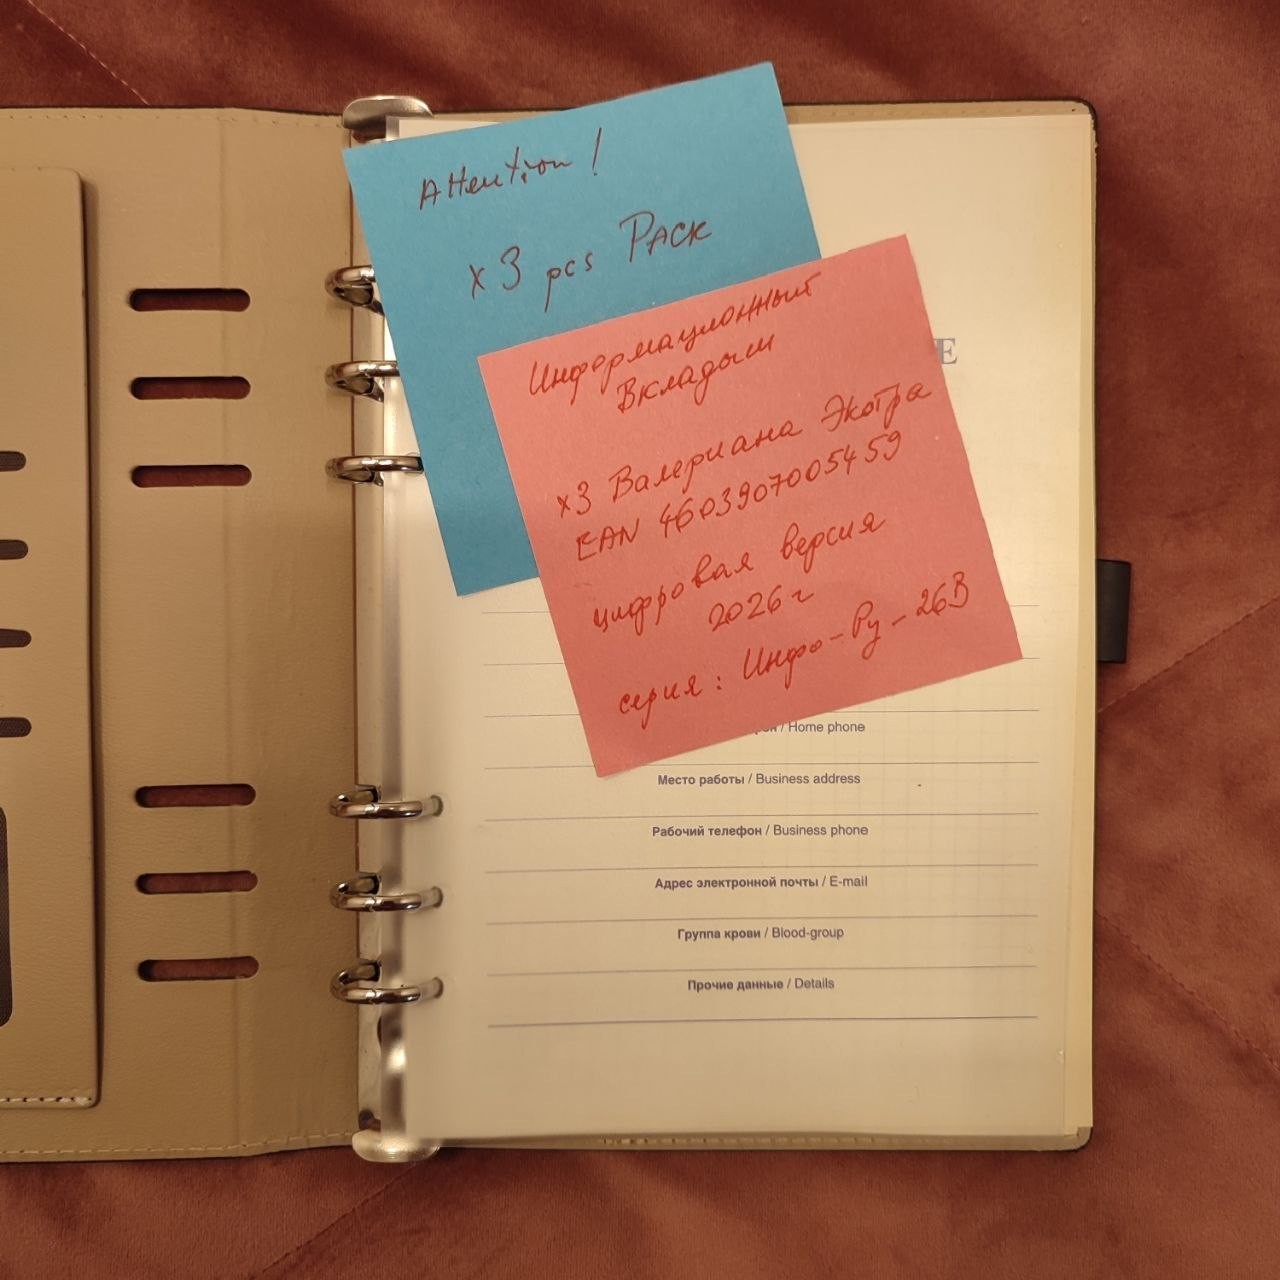 Attention!
x 3 pcs PACK
Информационный
Вкладыш
x3 Валериана Экстра
EAN 4603907005459
цифровая версия
2026г
серия: Инфо-Ру-26В
E
/ Home phone
Место работы / Business address
Рабочий телефон / Business phone
Адрес электронной почты / E-mail
Группа крови / Blood-group
Прочие данные / Details